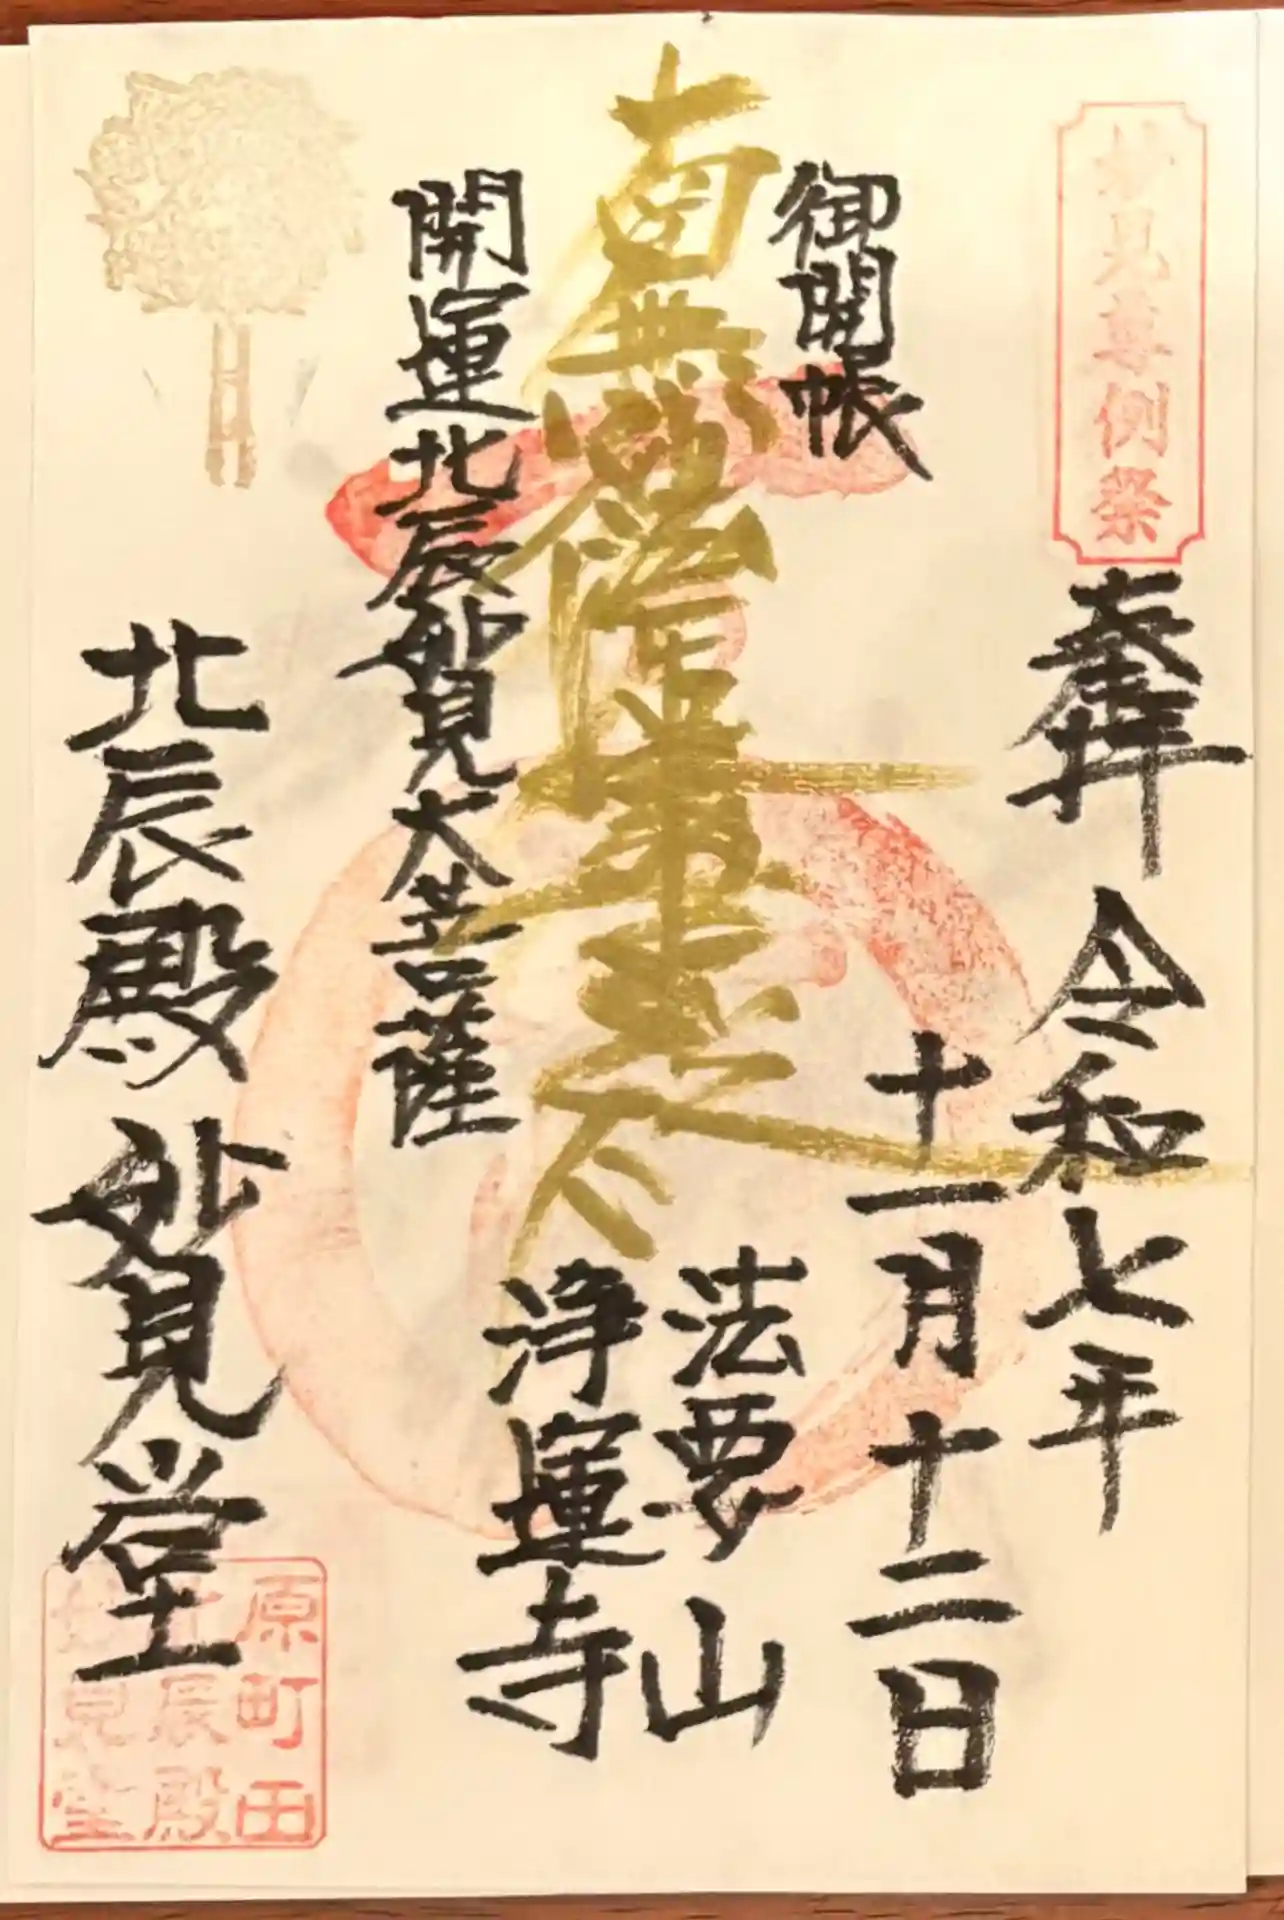 妙見尊例祭
奉拝 令和七年
十一月十二日
御開帳
南無妙法蓮華経
法要山
浄運寺
開運北辰妙見大菩薩
北辰殿 妙見堂
原町田
北辰殿
妙見堂